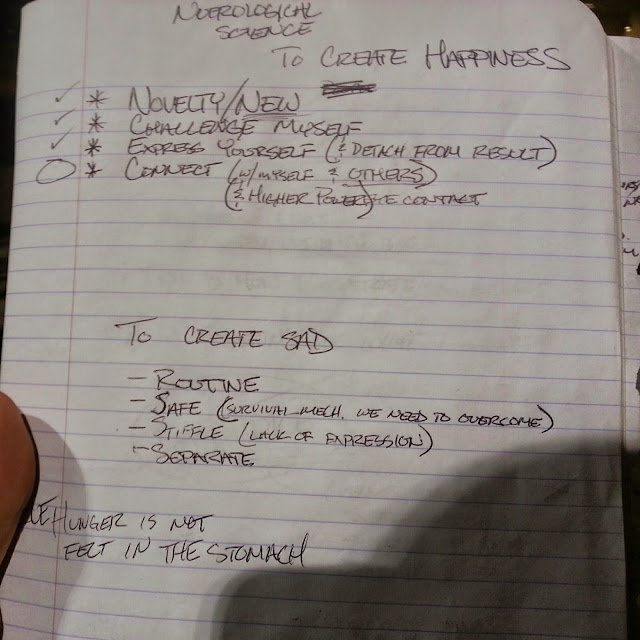 NUEROLOGICAL
SCIENCE
TO CREATE HAPPINESS
✓ * NOVELTY/NEW
✓ * CHALLENGE MYSELF
✓ * EXPRESS YOURSELF (& DETACH FROM RESULT)
○ * CONNECT (W/MYSELF & OTHERS)
(& HIGHER POWER) CONTACT
TO CREATE SAD
– ROUTINE
– SAFE (SURVIVAL MECH. WE NEED TO OVERCOME)
– STIFLE (LACK OF EXPRESSION)
– SEPARATE
HUNGER IS NOT
FELT IN THE STOMACH